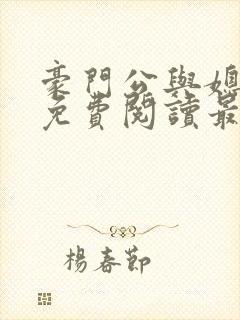 豪門公與媳
免費閱讀最
楊春節